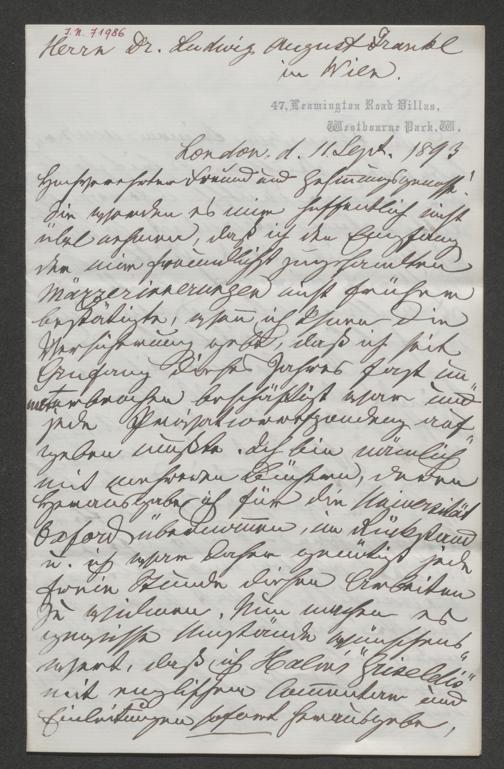 I.N. 71986
Herrn Dr. Ludwig August Frankl
in Wien.
47, Leamington Road Villas,
Westbourne Park, W.
London, d. 11. Sept. 1893
Hochverehrter Freund und Gesinnungsgenosse!
Sie werden es mir hoffentlich nicht
übel nehmen, daß ich den Empfang
der mir freundlichst zugesandten
Märzerinnerungen nicht früher
bestätigte, wenn ich Ihnen die
Versicherung gebe, daß ich seit
Anfang dieses Jahres fast un-
unterbrochen beschäftigt war und
jede Privatcorrespondenz auf-
geben mußte. Ich bin nämlich
mit mehreren Büchern, deren
Herausgabe ich für die Universität
Oxford übernommen, im Rückstand
u. ich war daher genötigt jede
freie Stunde diesen Arbeiten
zu widmen. Nun machen es
gewisse Umstände wünschens-
wert, daß ich Halms "Griseldis"
mit englischem Commentar und
Einleitungen sofort herausgebe,